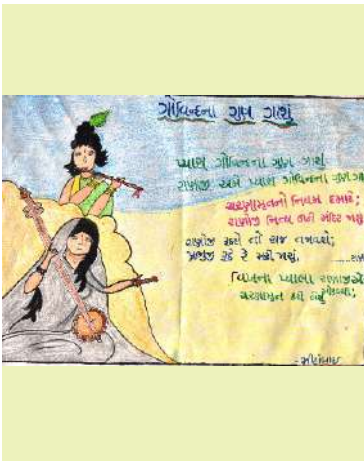 ગોવિન્દના ગુણ ગાશું
પ્યારા ગોવિન્દના ગુણ ગાશું
રાણાજી અમે પ્યારા ગોવિન્દના ગુણ ગા
ચરણામૃતનો નિયમ હમારે;
રાણાજી નિત્ય ઉઠી મંદિર જાશું
રાણોજી રૂઠશે તો રાજ તજાવશે;
પ્રભુજી રૂઠે રે મરી જાશું,
વિખના પ્યાલા રાણાજીએ
ચરણામૃત કરી લેશું
-મીરાંબાઈ